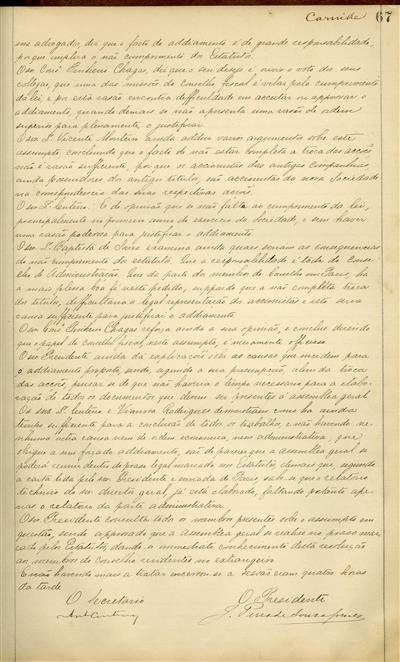 Carnide 67
sens advogados, diz que o facto do addiamento é de grande responsabilidade,
porque implica o não cumprimento dos Estatutos.
O Snr. Cons.º Pinheiro Chagas, diz que o seu desejo é ouvir o voto dos seus
collegas, que uma das missões do Conselho fiscal é velar pelo cumprimento
da lei, e por essa razão encontra difficuldade em acceitar ou approvar o
addiamento, quando demais se não apresenta uma razão de ordem
superior para plenamente o justificar.
O Snr. Dr. Vicente Monteiro ainda adduz varios argumentos sobre este
assumpto concluindo que o facto de não estar completa a troca das acções
não é razão sufficiente, por que os accionistas das antigas Companhias,
ainda possuidores dos antigos titulos, são accionistas da nova Sociedade
na correspondencia das suas respectivas acções.
O Snr. Centeno. É de opinião que se não falte ao cumprimento da lei,
principalmente no primeiro anno de exercicio da Sociedade, e sem haver
uma razão poderosa para justificar o addiamento.
O Snr. Dr. Baptista de Sousa examina ainda quaes seriam as consequencias
do não cumprimento dos estatutos. Que a responsabilidade é toda do Conse-
lho de Administração. Que da parte dos membros do Conselho em Paris, ha
a mais plena boa fé neste pedido, suppondo que a não completa troca
dos titulos, difficultaria a legal representação dos accionistas e esta seria
causa sufficiente para justificar o addiamento.
O Snr. Cons.º Pinheiro Chagas reforça ainda a sua opinião, e conclue dizendo
que o papel do conselho fiscal, neste assumpto, é meramente officioso.
O Snr. Presidente ainda dá explicações sobre as causas que incidem para
o addiamento proposto, sendo, segundo a sua presumpção, alem da troca
das acções, pensar-se de que não haveria o tempo necessario para a elabo-
ração de todos os documentos que devem ser presentes á assembléa geral
Os snrs. Centeno e Vianna Rodrigues demonstram como ha ainda
tempo sufficiente para a conclusão de todos os trabalhos, e não havendo ne-
nhuma outra causa nem de ordem economica, nem administrativa, que
obrigue a um forçado addiamento, são de parecer que a assembléa geral se
poderá reunir dentro do praso legal marcado nos Estatutos, demais que, segundo
a carta lida pelo snr. Presidente e enviada de Paris, sabe-se que o relatorio
technico do snr. director geral, já está elaborado, faltando portanto ape-
nas o relatorio da parte administrativa.
O Snr. Presidente consulta todos os membros presentes sobre o assumpto em
questão, sendo approvado que a assembléa geral se realise no praso mar-
cado pelos Estatutos, dando-se immediato conhecimento desta resolução
aos membros do Conselho residentes no extrangeiro.
E não havendo mais a tratar encerrou-se a sessão eram quatro horas
da tarde
O Secretario O Presidente
Ant Centeno J. Pires de Sousa Gomes